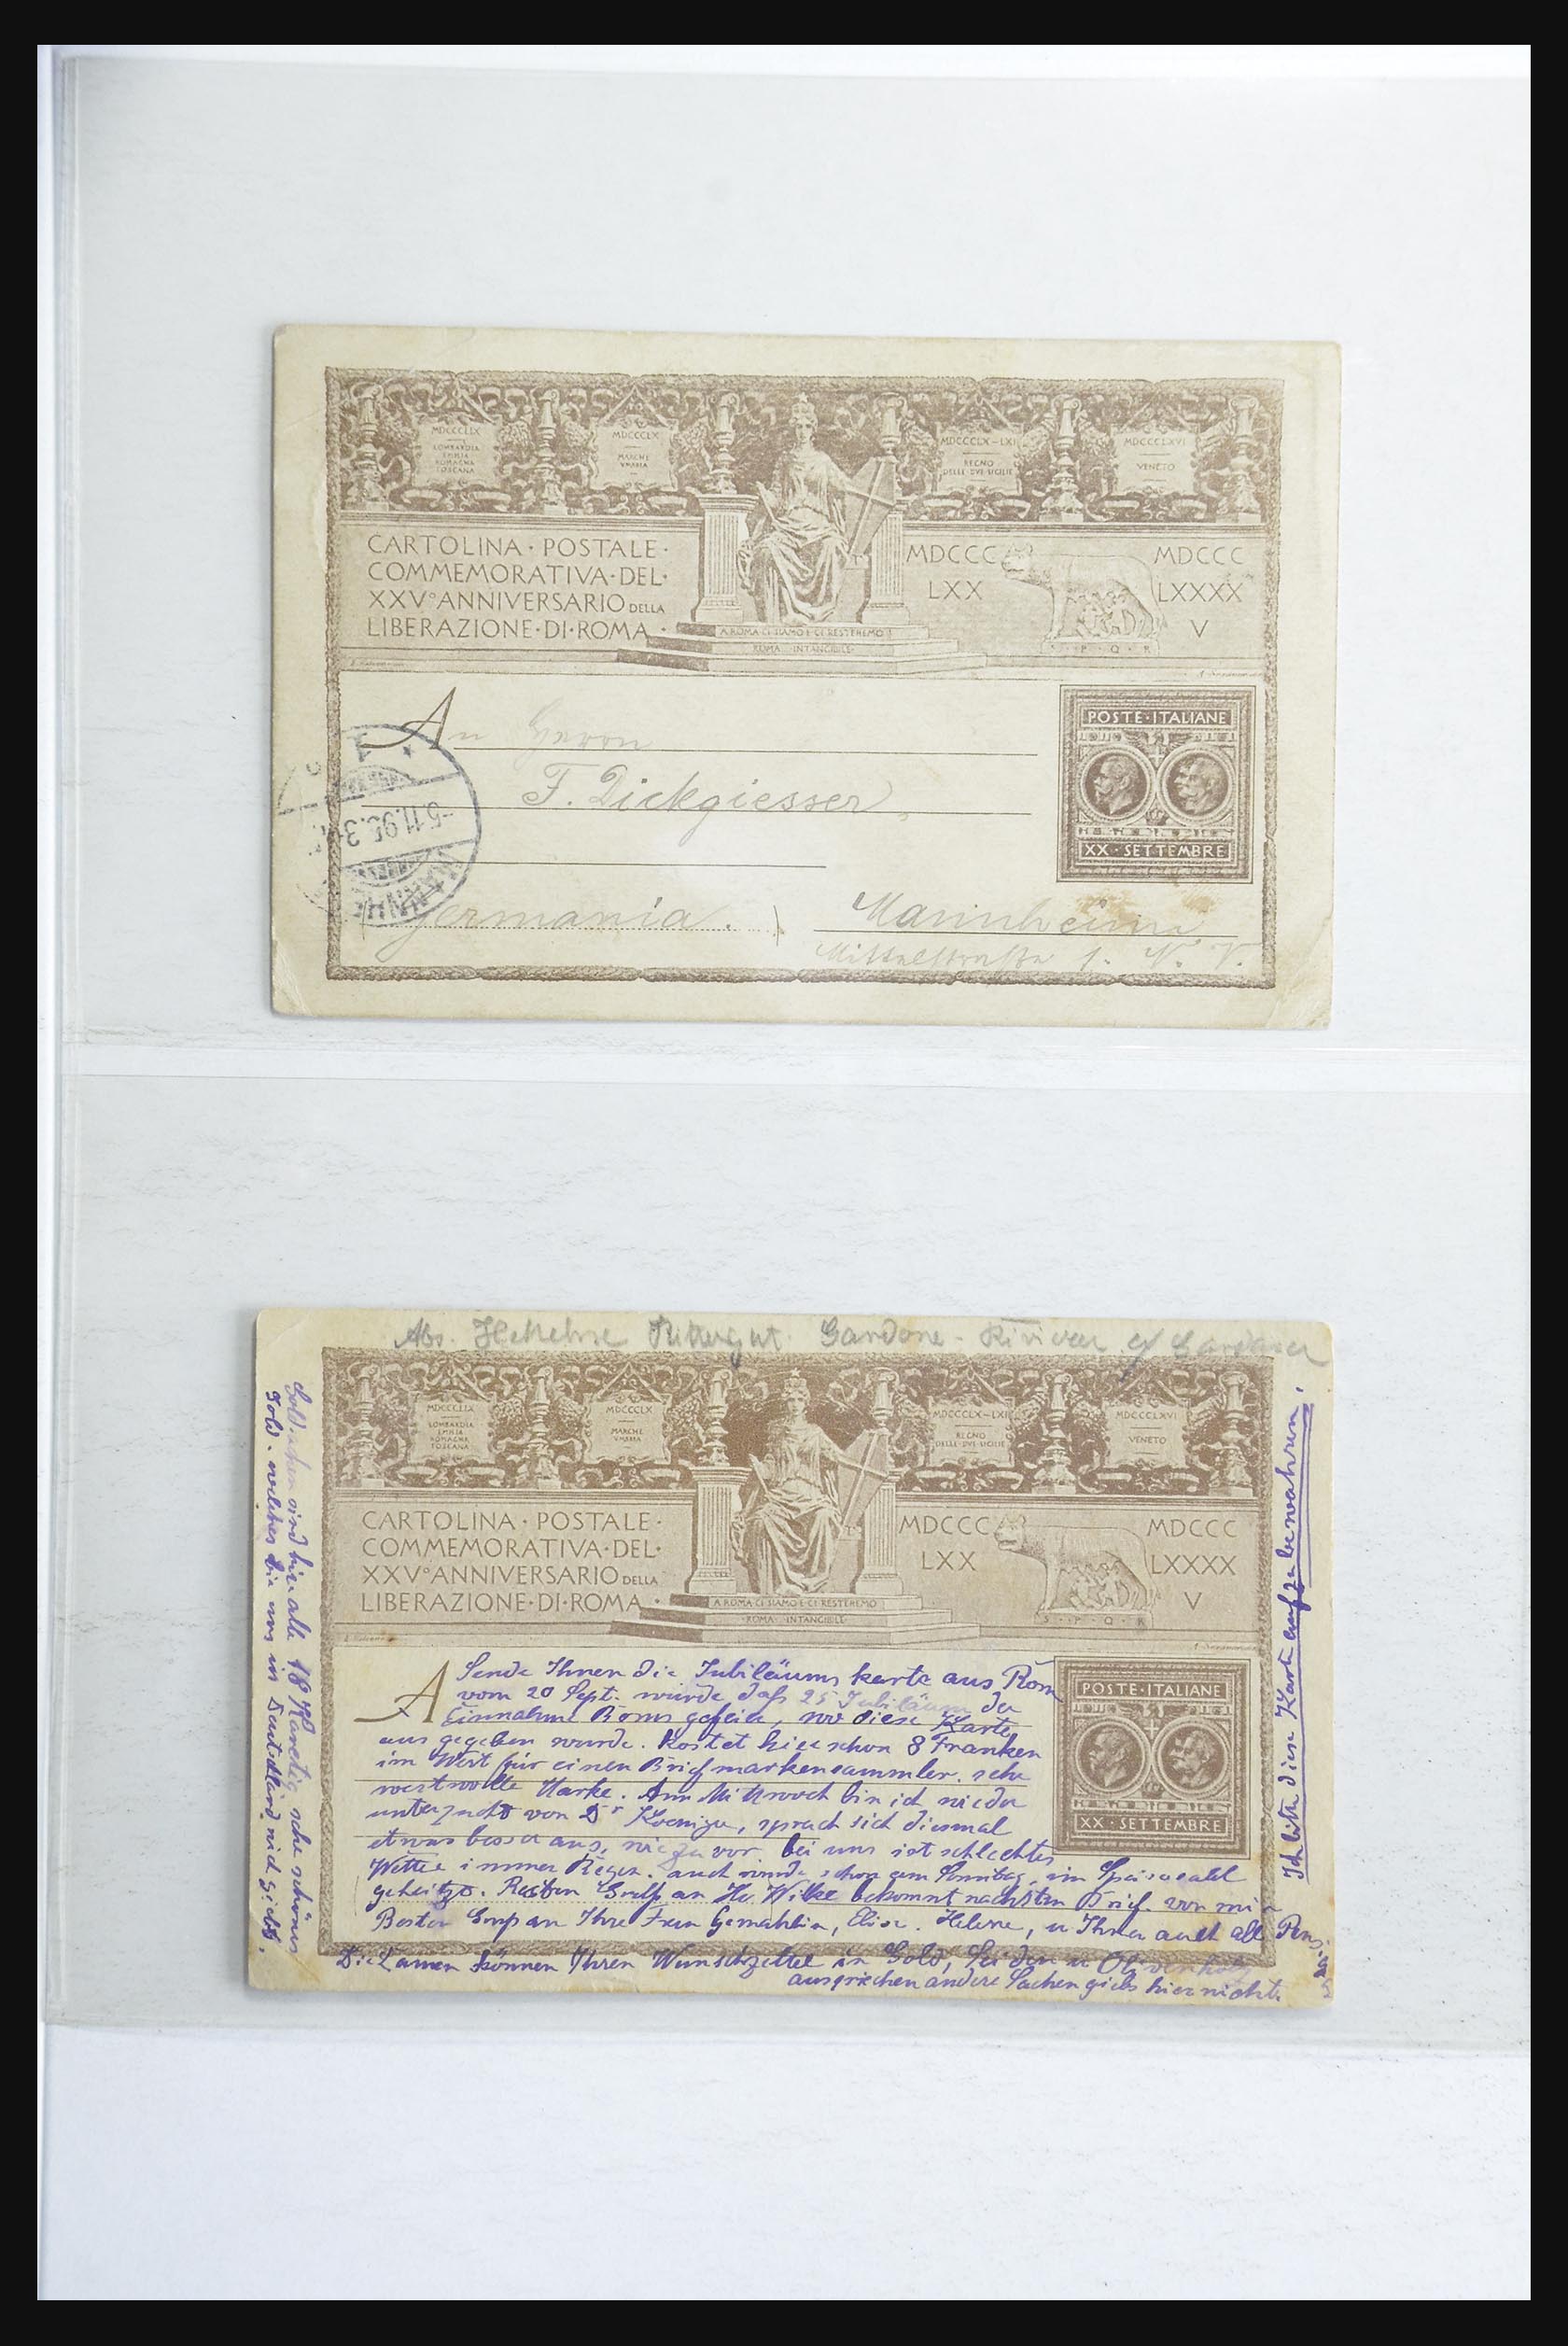 MDCCCLIX
LOMBARDIA
EMILIA
ROMAGNA
TOSCANA
MDCCCLX
MARCHE
VMBRIA
MDCCCLX-LXI
REGNO
DELLE·DVE·SICILIE
MDCCCLXVI
VENETO
CARTOLINA · POSTALE ·
COMMEMORATIVA·DEL·
XXV° ANNIVERSARIO DELLA
LIBERAZIONE·DI·ROMA ·
A ROMA CI SIAMO E CI RESTEREMO
ROMA · INTANGIBILE·
MDCCC
LXX
MDCCC
LXXXX
V
S · P · Q · R
An Herrn
F. Dickgiesser
Germania.
Mannheim
Mittelstrasse 1. N. V.
-5.11.95.3
POSTE·ITALIANE
XX · SETTEMBRE
Abs. Rittergut Gardone - Riviera
MDCCCLIX
LOMBARDIA
EMILIA
ROMAGNA
TOSCANA
MDCCCLX
MARCHE
VMBRIA
MDCCCLX-LXI
REGNO
DELLE·DVE·SICILIE
MDCCCLXVI
VENETO
CARTOLINA · POSTALE ·
COMMEMORATIVA·DEL·
XXV° ANNIVERSARIO DELLA
LIBERAZIONE·DI·ROMA ·
A ROMA CI SIAMO E CI RESTEREMO
·ROMA · INTANGIBILE·
MDCCC
LXX
MDCCC
LXXXX
V
S · P · Q · R
A
POSTE·ITALIANE
XX · SETTEMBRE
Sende Ihnen die Jubiläums karte aus Rom
vom 20 Sept. wurde daß 25 Jubiläum der
Einnahme Roms gefeier, wo diese Karte
aus gegeben wurde. Kostet hier schon 8 Franken
im Wert für einen Briefmarkensammler. sehr
wertvolle Marke. Am Mittwoch bin ich wieder
untersucht von Dr Koeniger, sprach sich diesmal
etwas besser aus, wie zu vor. bei uns ist schlechtes
Wetter immer Regen. auch wurde schon am Sonntag, im Speisesaal
geheitzt. Besten Gruß an Hr. Wilke bekommt nächsten Brief von mir
Besten Gruß an Ihre Frau Gemahlin, Elise. Helene, u Ihnen auch all
Die Damen können Ihren Wunschzettel in Gold, Seiden u Olivenholz
aussprechen andere Sachen giebs hier nicht.
Goldsachen sind hier alle 18 Karetig sehr schönes
Gold. welches bei uns in Deutschland nich giebt.
Ich bitte diese Karte aufzubewahren.